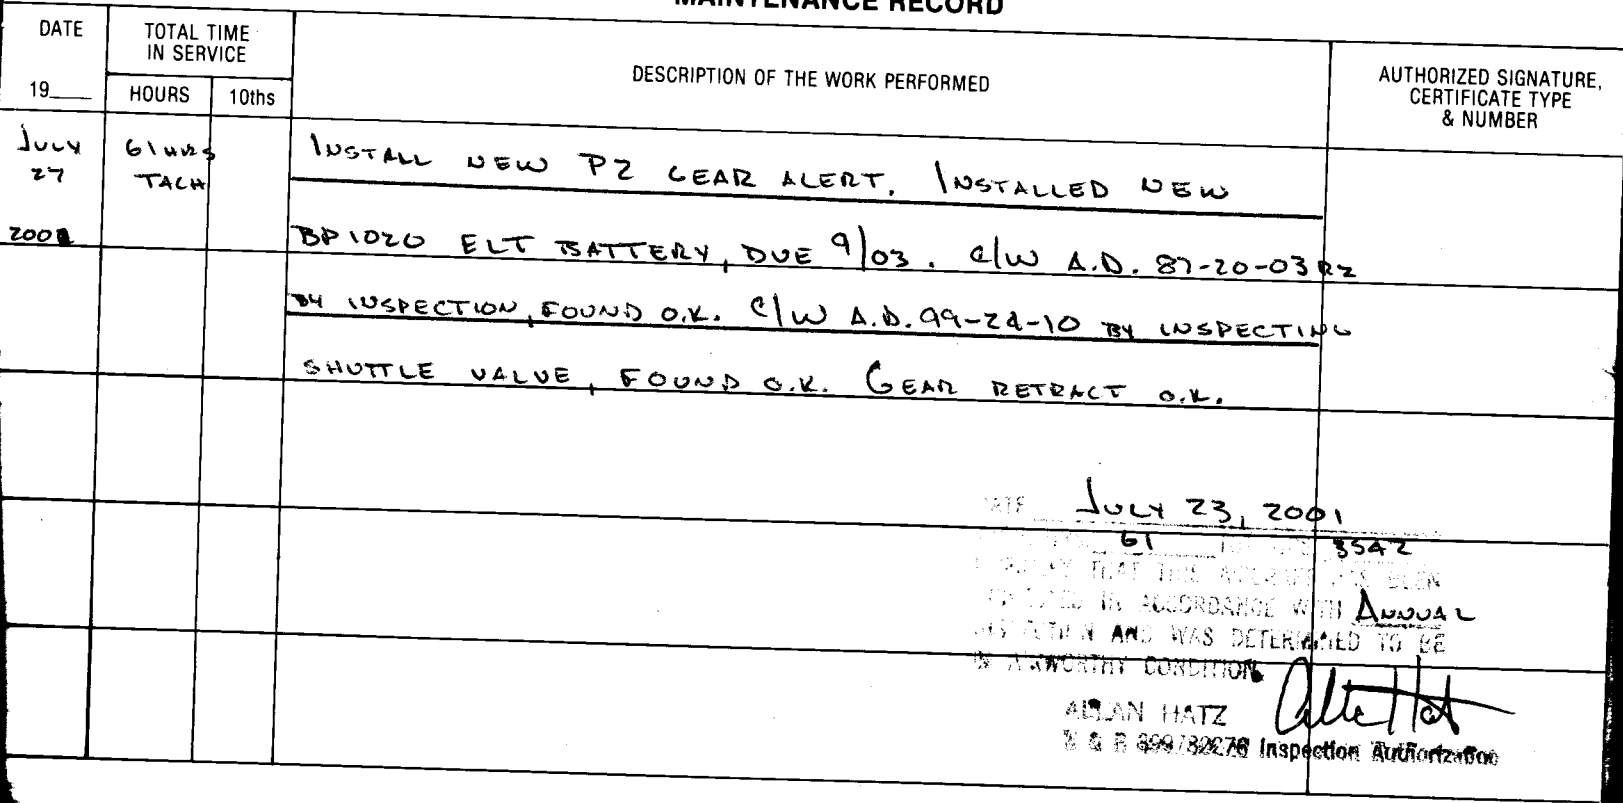 MAINTENANCE RECORD
DATE
19
TOTAL TIME
IN SERVICE
HOURS 10ths
DESCRIPTION OF THE WORK PERFORMED
AUTHORIZED SIGNATURE,
CERTIFICATE TYPE
& NUMBER
JULY
27
2001
61 HRS
TACH
INSTALL NEW P2 GEAR ALERT. INSTALLED NEW
BP1020 ELT BATTERY, DUE 9/03. C/W A.D. 87-20-03R2
BY INSPECTION, FOUND O.K. C/W A.D. 99-24-10 BY INSPECTING
SHUTTLE VALVE, FOUND O.K. GEAR RETRACT O.K.
DATE JULY 23, 2001
61 3542
THAT THIS AIRCRAFT HAS BEEN
IN ACCORDANCE WITH ANNUAL
INSPECTION AND WAS DETERMINED TO BE
IN AIRWORTHY CONDITION.
ALLAN HATZ
Inspection Authorization